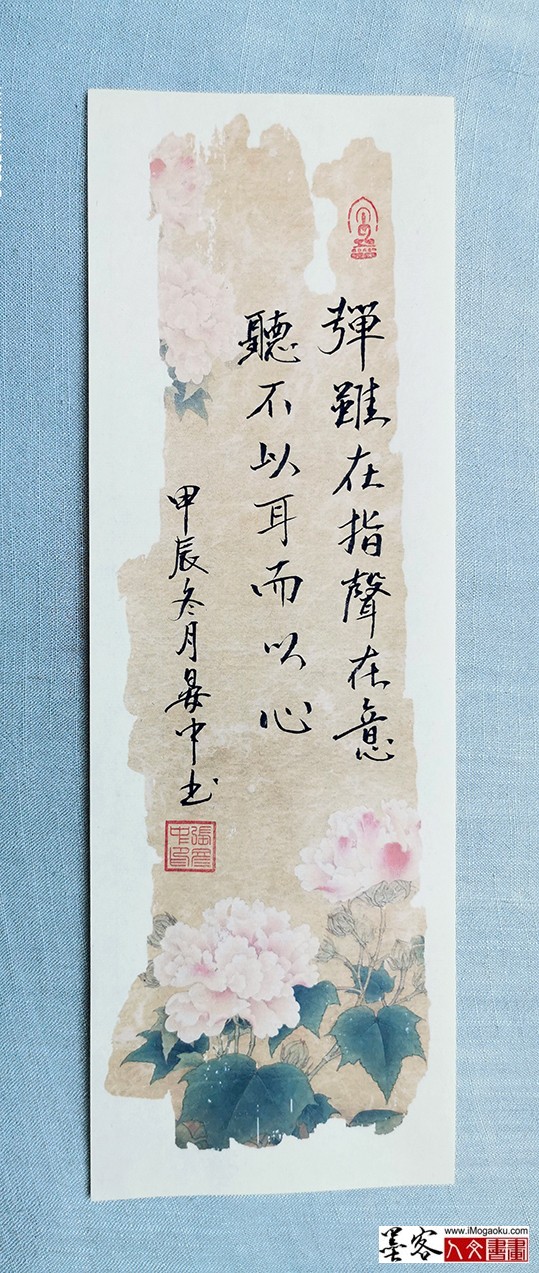 彈雖在指聲在意
聽不以耳而以心
甲辰冬月晏中书
墨客
www.iMogaoku.com
人文書畫